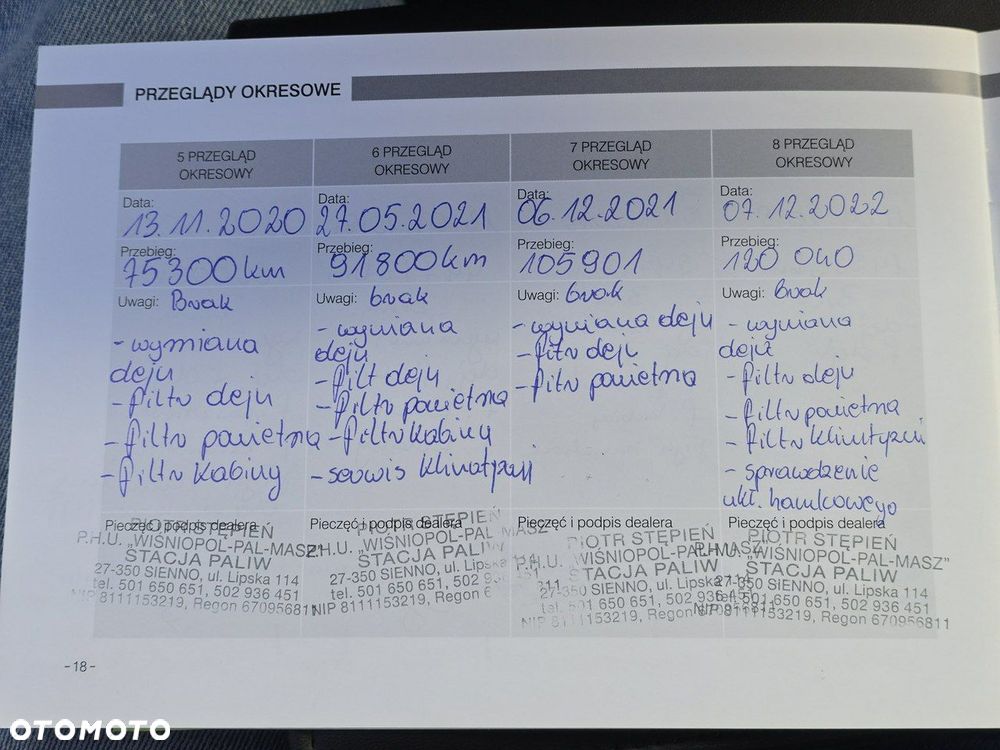 PRZEGLĄDY OKRESOWE
5 PRZEGLĄD
OKRESOWY
Data:
13.11.2020
Przebieg:
75300km
Uwagi: Brak
- wymiana
oleju
- filtr oleju
- filtr powietrna
- filtr kabiny
Pieczęć i podpis dealera
PIOTR STĘPIEŃ
P.H.U. „WIŚNIOPOL-PAL-MASZ"
STACJA PALIW
27-350 SIENNO, ul. Lipska 114
tel. 501 650 651, 502 936 451
NIP 8111153219, Regon 670956811
6 PRZEGLĄD
OKRESOWY
Data:
27.05.2021
Przebieg:
91800km
Uwagi: brak
- wymiana
oleju
- filt oleju
- filtr powietrna
- filtr kabiny
- serwis klimatyzacji
Pieczęć i podpis dealera
PIOTR STĘPIEŃ
P.H.U. „WIŚNIOPOL-PAL-MASZ"
STACJA PALIW
27-350 SIENNO, ul. Lipska 114
tel. 501 650 651, 502 936 451
NIP 8111153219, Regon 670956811
7 PRZEGLĄD
OKRESOWY
Data:
06.12.2021
Przebieg:
105901
Uwagi: brak
- wymiana oleju
- filtr oleju
- filtr powietrna
Pieczęć i podpis dealera
PIOTR STĘPIEŃ
P.H.U. „WIŚNIOPOL-PAL-MASZ"
STACJA PALIW
27-350 SIENNO, ul. Lipska 114
tel. 501 650 651, 502 936 451
NIP 8111153219, Regon 670956811
8 PRZEGLĄD
OKRESOWY
Data:
07.12.2022
Przebieg:
120 040
Uwagi: Brak
- wymiana
oleju
- filtr oleju
- filtr powietrna
- filtr klimatyzacji
- sprawdzenie
ukł. hamulcowego
Pieczęć i podpis dealera
PIOTR STĘPIEŃ
P.H.U. „WIŚNIOPOL-PAL-MASZ"
STACJA PALIW
27-350 SIENNO, ul. Lipska 114
tel. 501 650 651, 502 936 451
NIP 8111153219, Regon 670956811
- 18 -
OTOMOTO